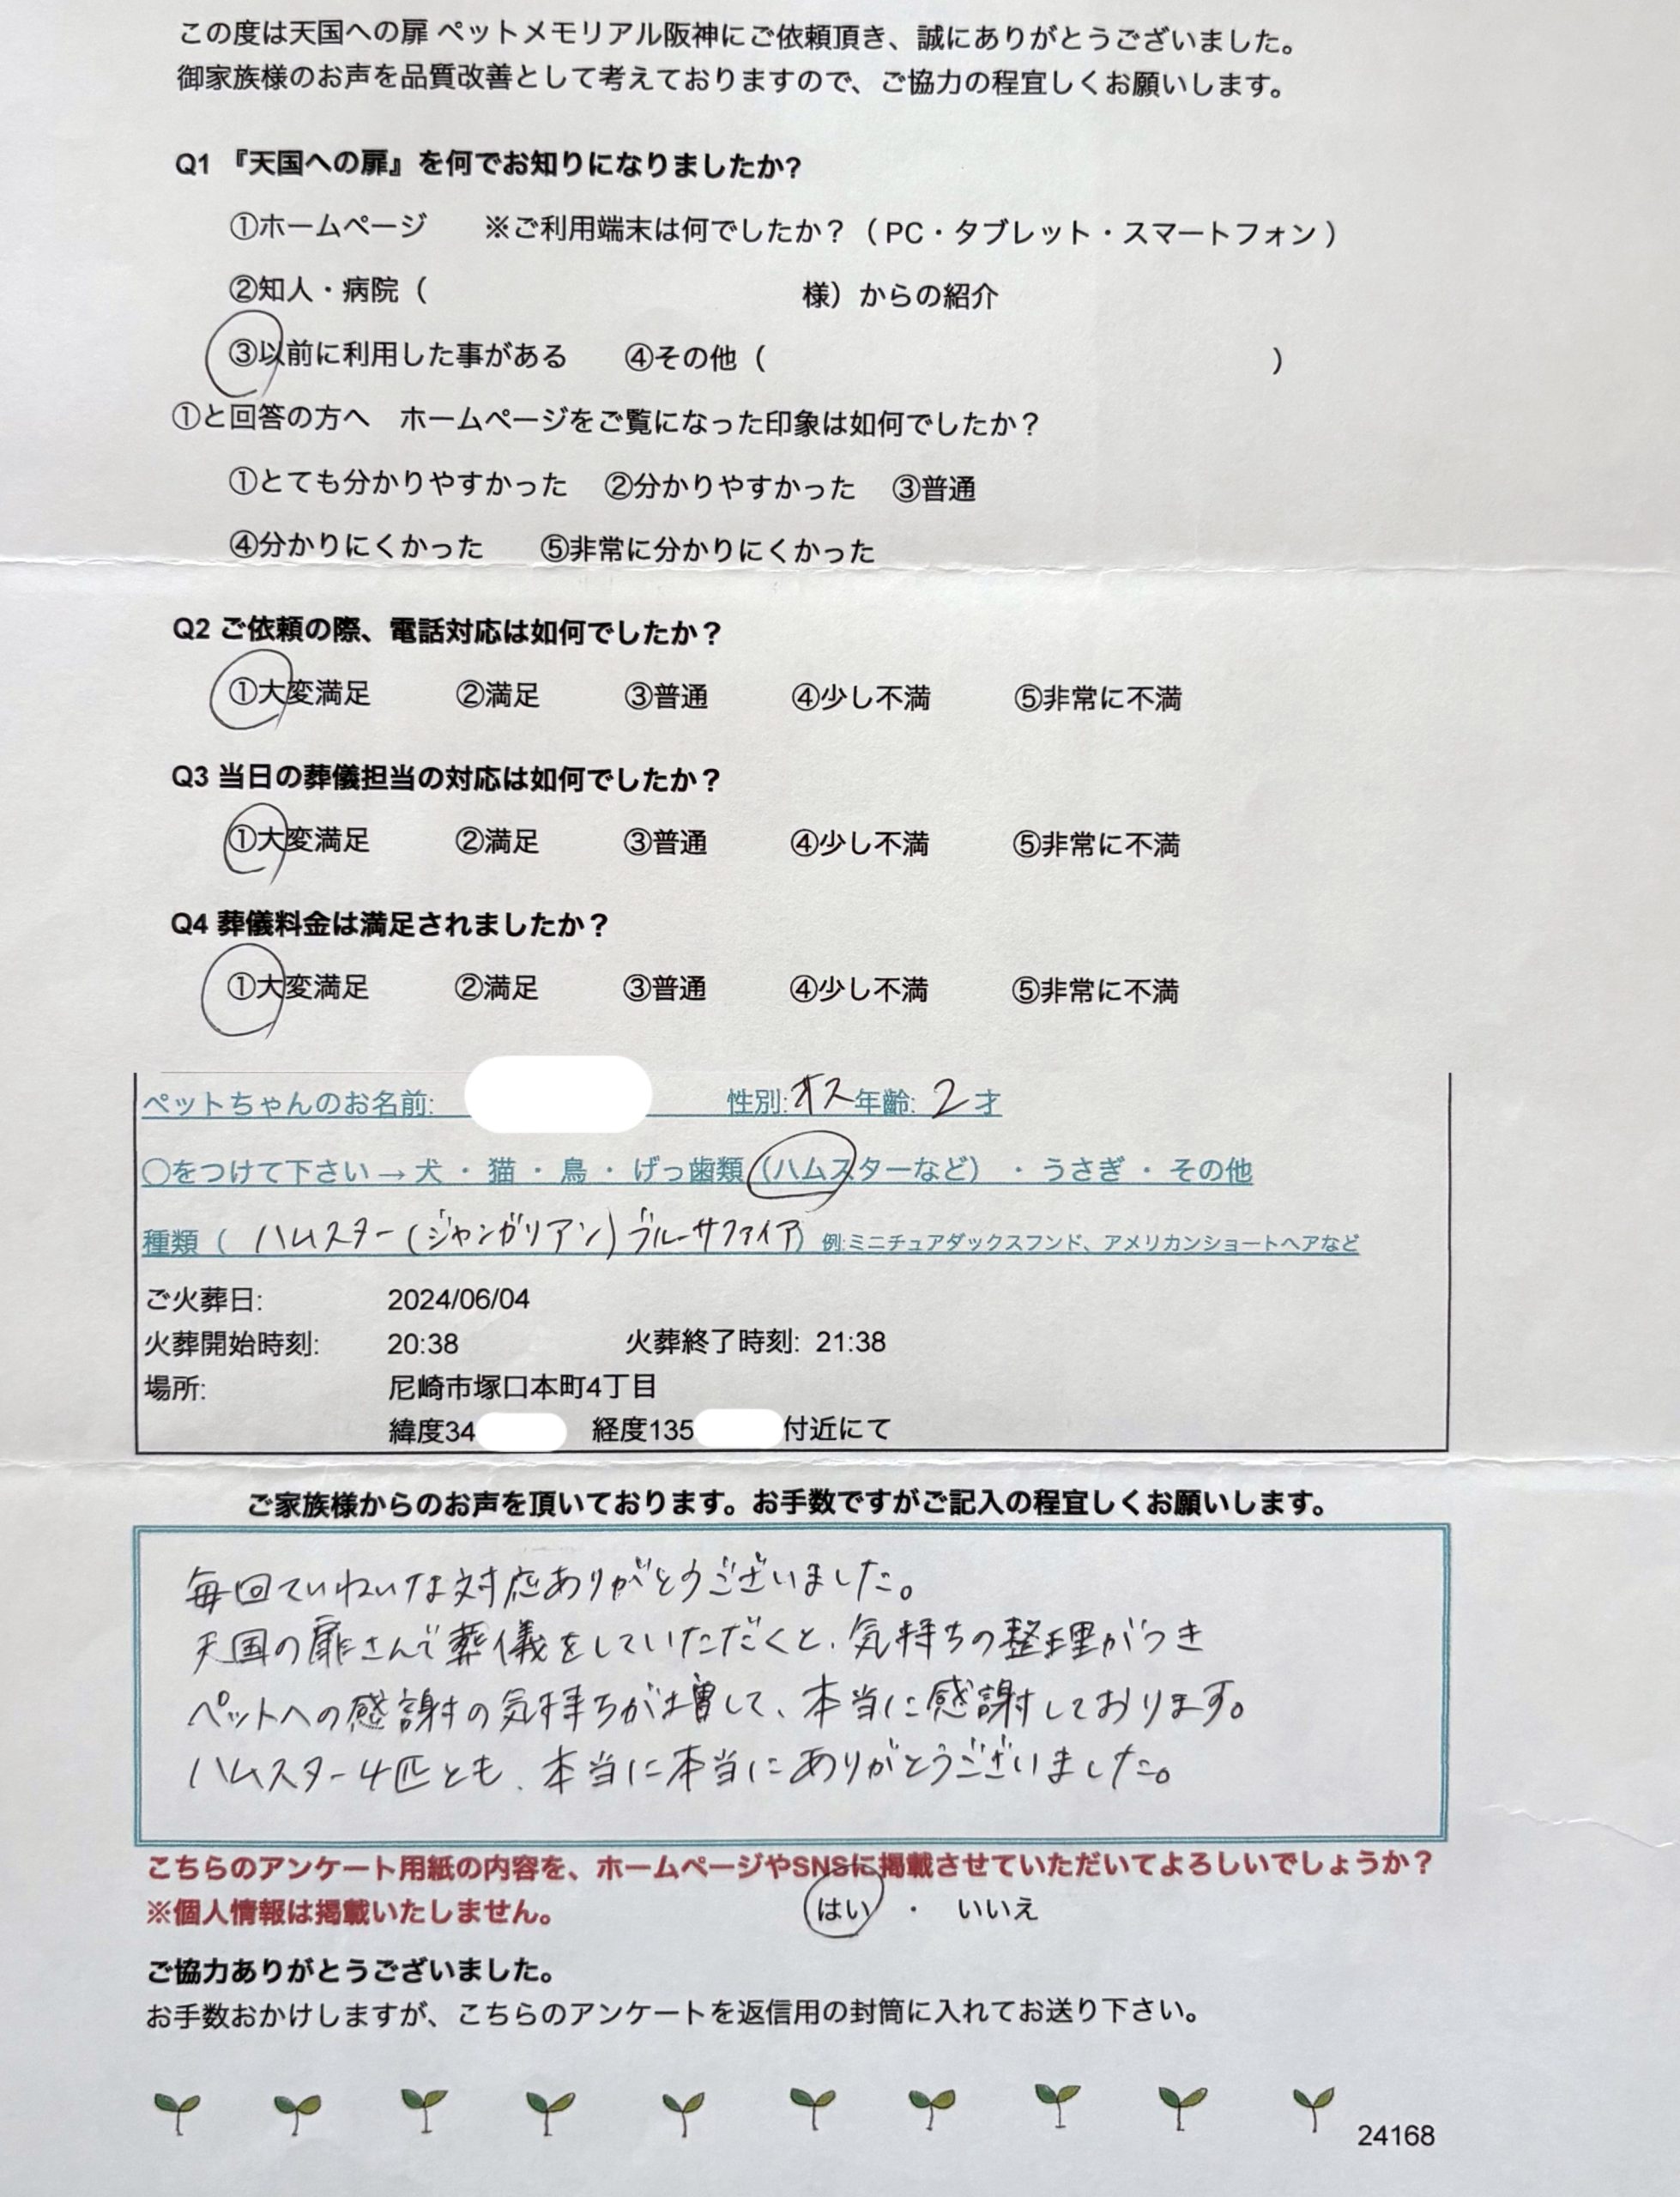 この度は天国への扉 ペットメモリアル阪神にご依頼頂き、誠にありがとうございました。
御家族様のお声を品質改善として考えておりますので、ご協力の程宜しくお願いします。
Q1 『天国への扉』を何でお知りになりましたか?
①ホームページ ※ご利用端末は何でしたか？（PC・タブレット・スマートフォン）
②知人・病院（ 様）からの紹介
③以前に利用した事がある ④その他（ ）
①と回答の方へ ホームページをご覧になった印象は如何でしたか？
①とても分かりやすかった ②分かりやすかった ③普通
④分かりにくかった ⑤非常に分かりにくかった
Q2 ご依頼の際、電話対応は如何でしたか？
①大変満足 ②満足 ③普通 ④少し不満 ⑤非常に不満
Q3 当日の葬儀担当の対応は如何でしたか？
①大変満足 ②満足 ③普通 ④少し不満 ⑤非常に不満
Q4 葬儀料金は満足されましたか？
①大変満足 ②満足 ③普通 ④少し不満 ⑤非常に不満
ペットちゃんのお名前: 性別:オス年齢: 2才
○をつけて下さい→犬 ・ 猫 ・ 鳥 ・ げっ歯類（ハムスターなど） ・ うさぎ ・ その他
種類（ ハムスター(ジャンガリアン)ブルーサファイア）例:ミニチュアダックスフンド、アメリカンショートヘアなど
ご火葬日: 2024/06/04
火葬開始時刻: 20:38 火葬終了時刻: 21:38
場所: 尼崎市塚口本町4丁目
緯度34 経度135 付近にて
ご家族様からのお声を頂いております。お手数ですがご記入の程宜しくお願いします。
毎回ていねいな対応ありがとうございました。
天国の扉さんで葬儀をしていただくと、気持ちの整理がつき
ペットへの感謝の気持ちが増して、本当に感謝しております。
ハムスター4匹とも、本当に本当にありがとうございました。
こちらのアンケート用紙の内容を、ホームページやSNSに掲載させていただいてよろしいでしょうか？
※個人情報は掲載いたしません。 はい ・ いいえ
ご協力ありがとうございました。
お手数おかけしますが、こちらのアンケートを返信用の封筒に入れてお送り下さい。
24168